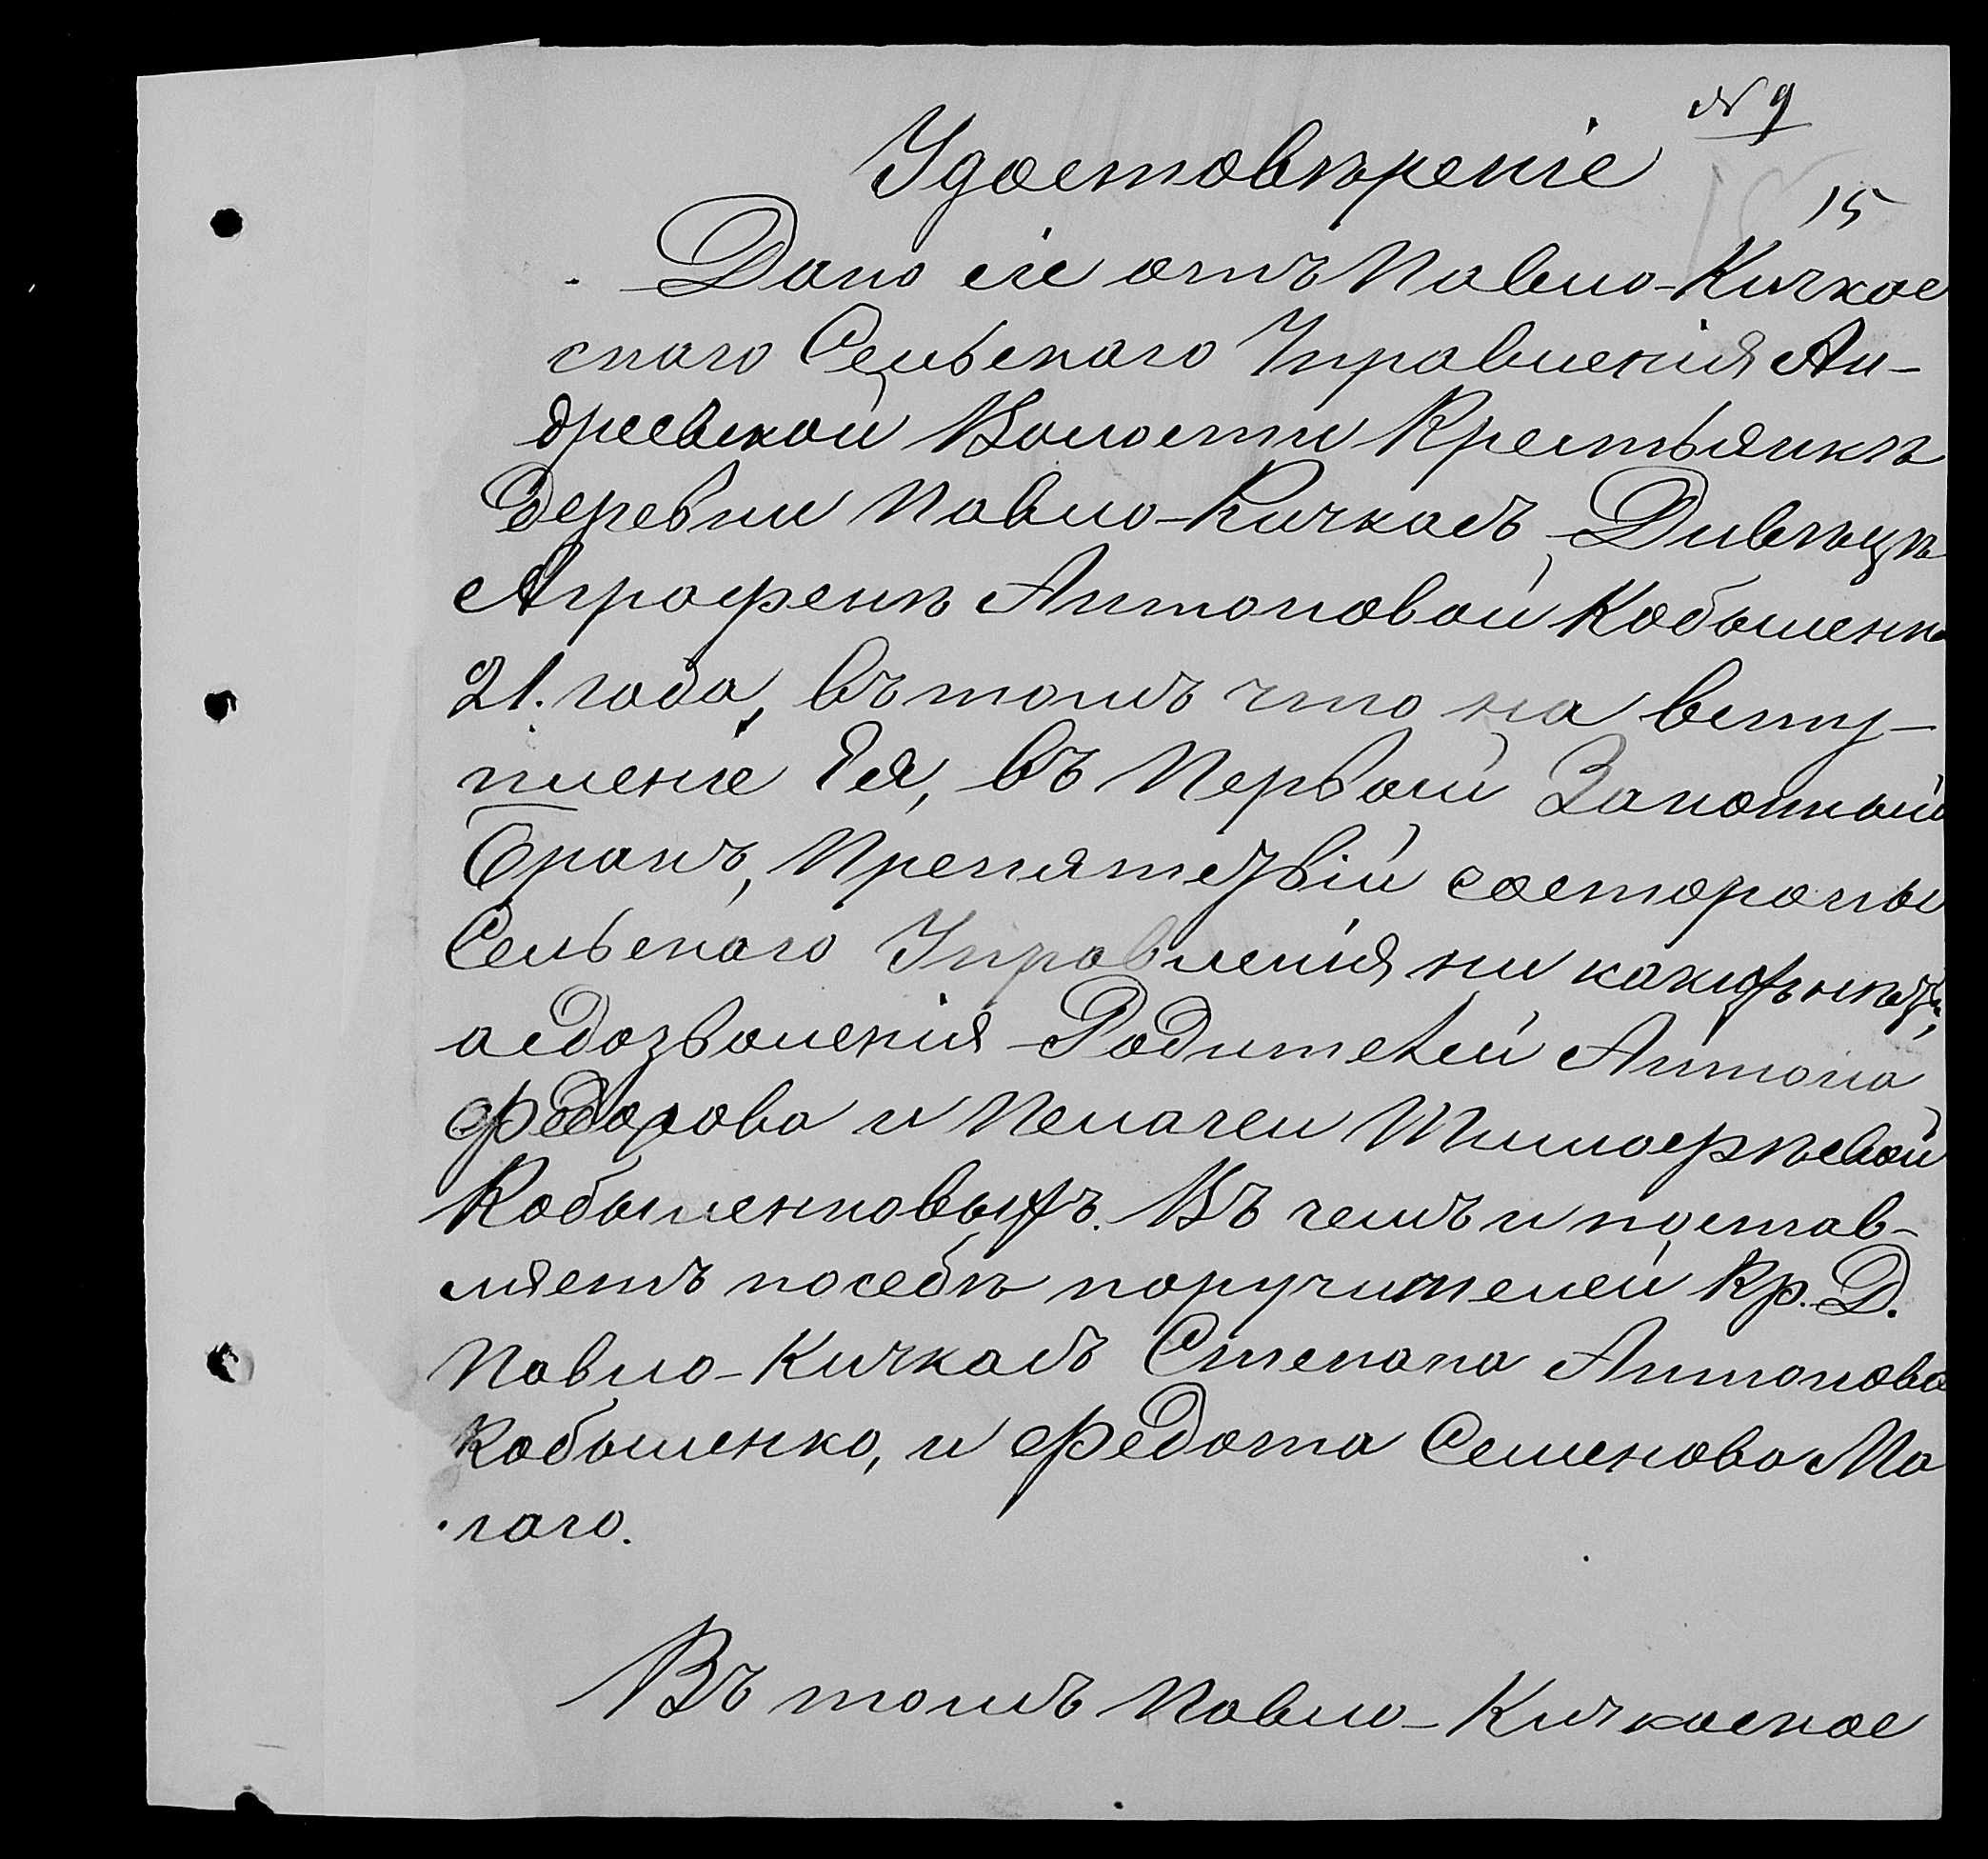 № 9
Удостовѣреніе
15
Дано сіе отъ Павло-Кичкас
скаго Сельскаго Управленія Ан-
дреевской Волости Крестьянкѣ
Деревни Павло-Кичкасъ Дивѣцѣ
Аграфенѣ Антоновой Кобыленкѣ
21. года, въ томъ что на всту-
пленіе Ея, въ Первый Законный
Бракъ, Препятствій состороны
Сельскаго Управленія ни какихъ нѣтъ,
а сдозволенія Родителей Антона
Федорова и Пелагеи Тимофѣевой
Кобыленковыхъ. Въ чемъ и постав-
ляетъ посебѣ поручителей Кр. Д.
Павло-Кичкасъ Степана Антонова
Кобыленко, и Федота Семенова Ма
лаго.
Въ томъ Павло-Кичкаское